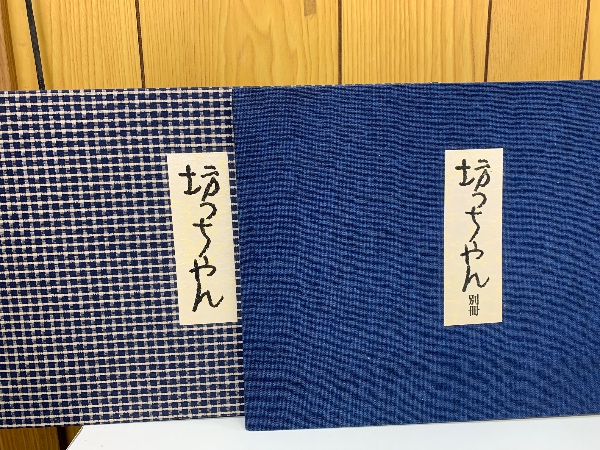 坊っちゃん
坊っちゃん 別冊